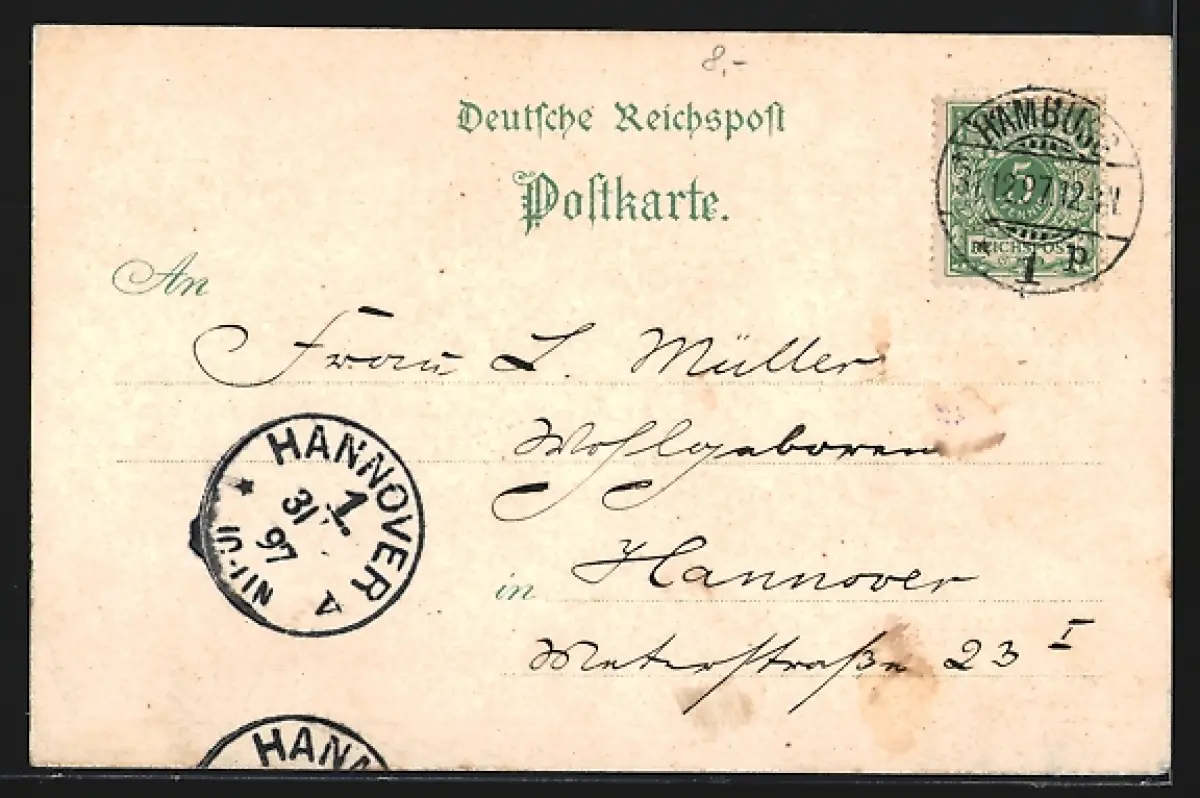 8,-
Deutsche Reichspost
Postkarte.
HAMBURG
31.12.97.12-
1 P
5
REICHSPOST
An
Frau L. Müller
Wohlgeboren
in Hannover
Meterstraße 23 I
HANNOVER
1
31
97
A
HANN